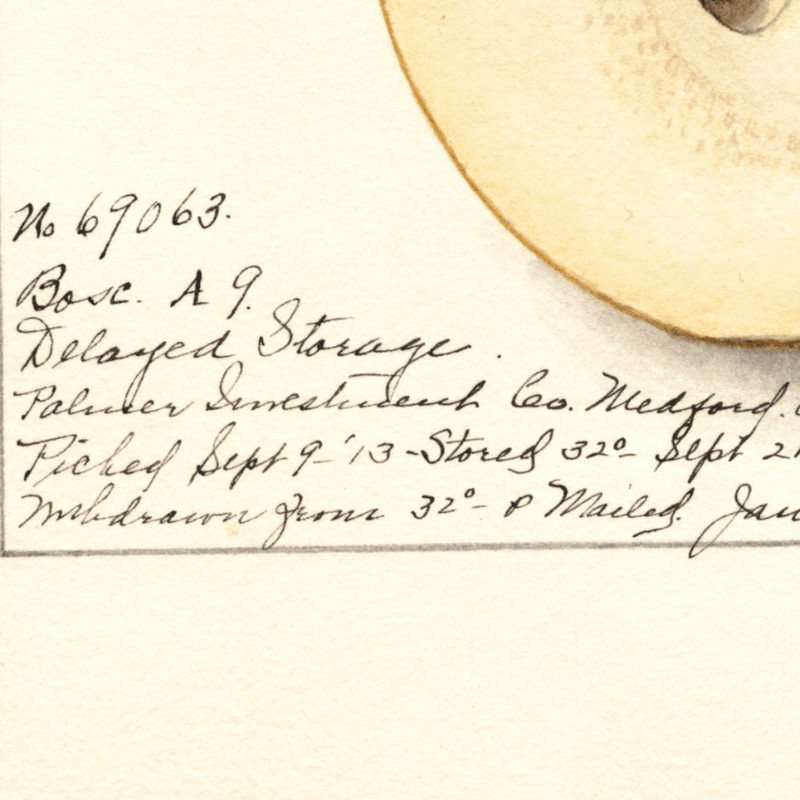 No 69063.
Bosc. A 9.
Delayed Storage.
Palmer Investment Co. Medford.
Picked Sept 9-'13-Stored 32°- Sept 2
Withdrawn from 32°- & Mailed. Jan